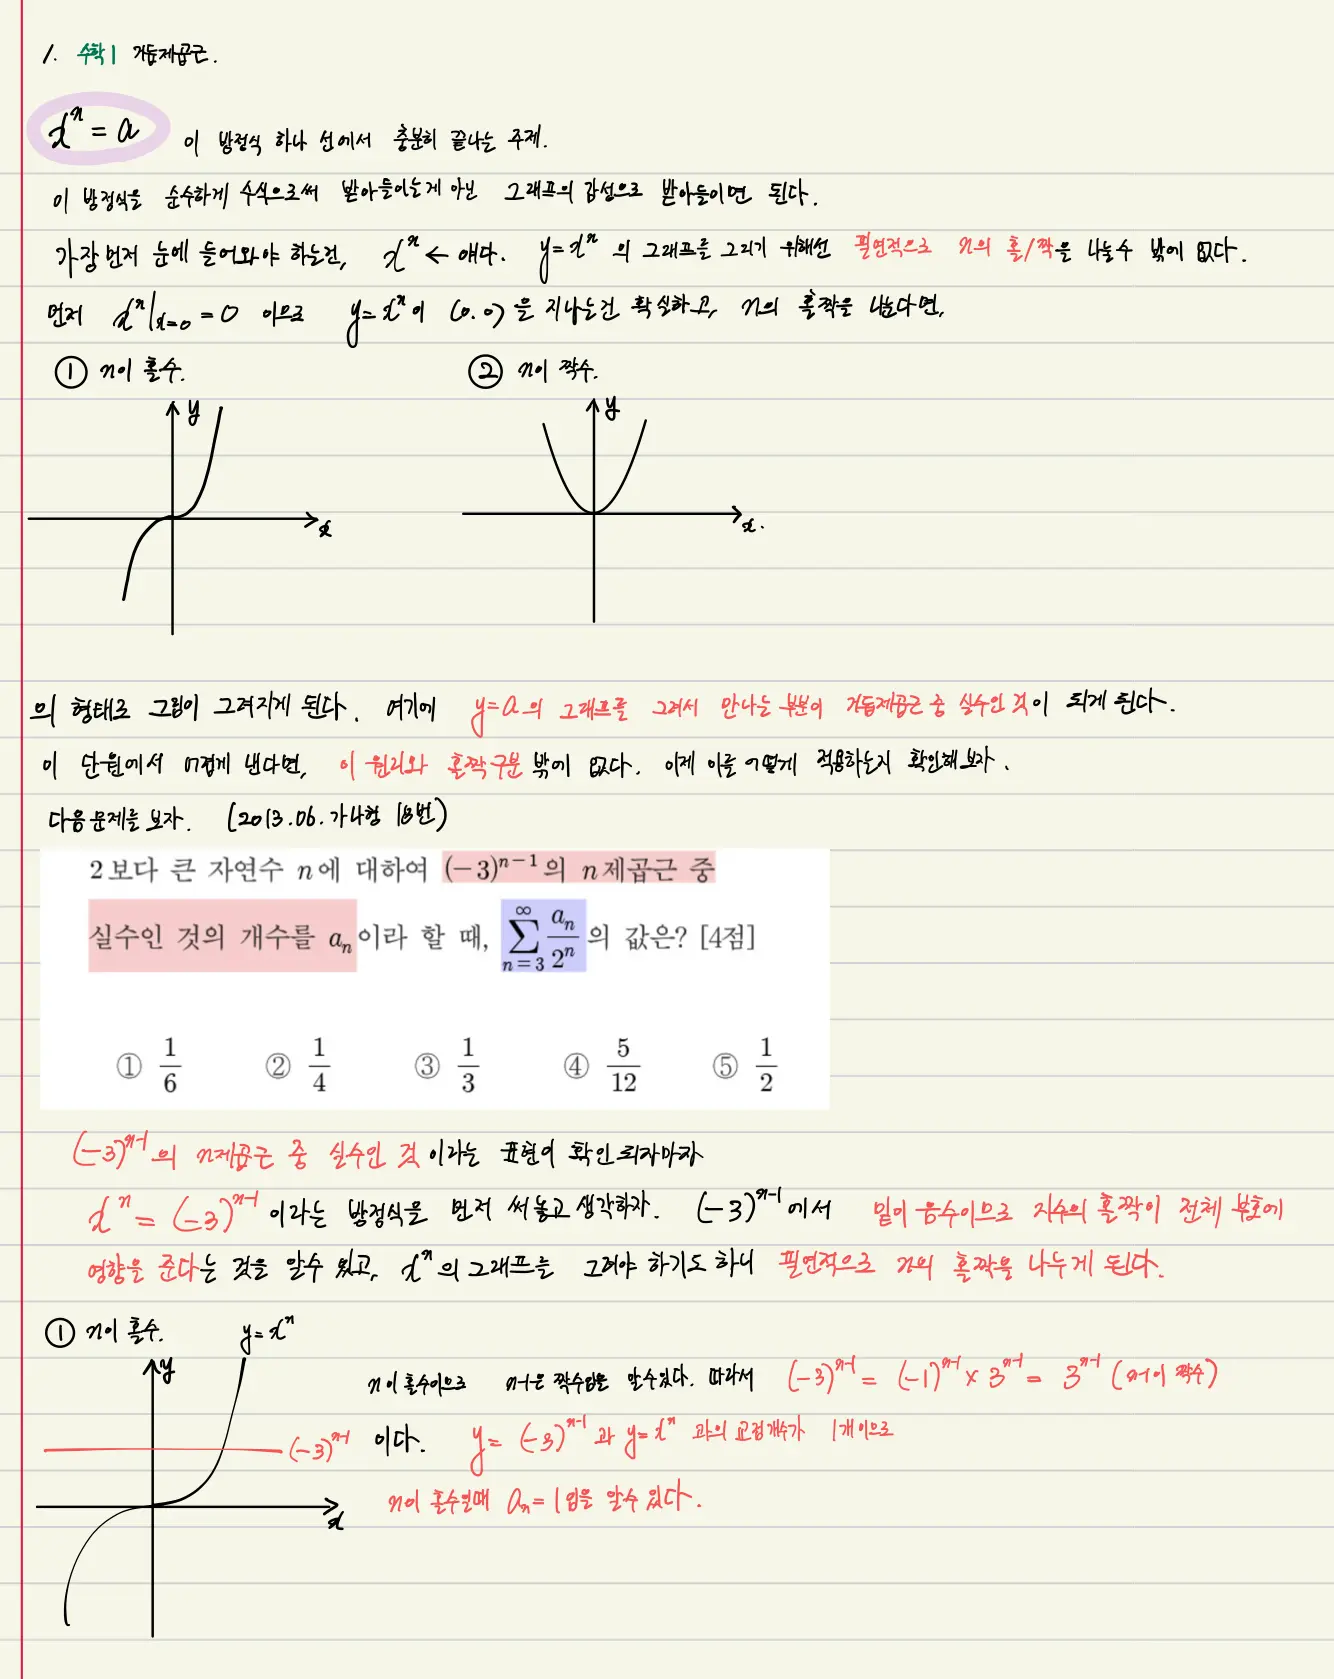 1. 수학1 거듭제곱근.
xⁿ = a 이 방정식 하나 선에서 충분히 끝나는 주제.
이 방정식을 순수하게 수식으로써 받아들이는게 아닌 그래프의 감성으로 받아들이면 된다.
가장 먼저 눈에 들어와야 하는건, xⁿ ← 얘다. y=xⁿ 의 그래프를 그리기 위해선 필연적으로 n의 홀/짝을 나눌수 밖에 없다.
먼저 xⁿ|x=0 = 0 이므로 y=xⁿ이 (0,0)을 지나는건 확실하고, n의 홀짝을 나눈다면,
① n이 홀수. ② n이 짝수.
y y
x x.
의 형태로 그림이 그려지게 된다. 여기에 y=a의 그래프를 그려서 만나는 부분이 거듭제곱근 중 실수인 것이 되게 된다.
이 단원에서 어렵게 낸다면, 이 원리와 홀짝구분 밖에 없다. 이제 이를 어떻게 적용하는지 확인해보자.
다음 문제를 보자. (2013.06.가나형 18번)
2보다 큰 자연수 n에 대하여 (−3)ⁿ⁻¹의 n제곱근 중
실수인 것의 개수를 aₙ이라 할 때, ∑_{n=3}^{∞} aₙ/2ⁿ 의 값은? [4점]
① 1/6 ② 1/4 ③ 1/3 ④ 5/12 ⑤ 1/2
(-3)ⁿ⁻¹의 n제곱근 중 실수인 것 이라는 표현이 확인되자마자
xⁿ = (-3)ⁿ⁻¹ 이라는 방정식을 먼저 써놓고 생각하자. (-3)ⁿ⁻¹에서 밑이 음수이므로 지수의 홀짝이 전체 부호에
영향을 준다는 것을 알수 있고, xⁿ의 그래프를 그려야 하기도 하니 필연적으로 n의 홀짝을 나누게 된다.
① n이 홀수. y=xⁿ
y
n이 홀수이므로 n-1은 짝수임을 알수있다. 따라서 (-3)ⁿ⁻¹ = (-1)ⁿ⁻¹ × 3ⁿ⁻¹ = 3ⁿ⁻¹ (n-1이 짝수)
(-3)ⁿ⁻¹ 이다. y = (-3)ⁿ⁻¹ 과 y=xⁿ 과의 교점개수가 1개이므로
n이 홀수일때 aₙ=1임을 알수 있다.
x